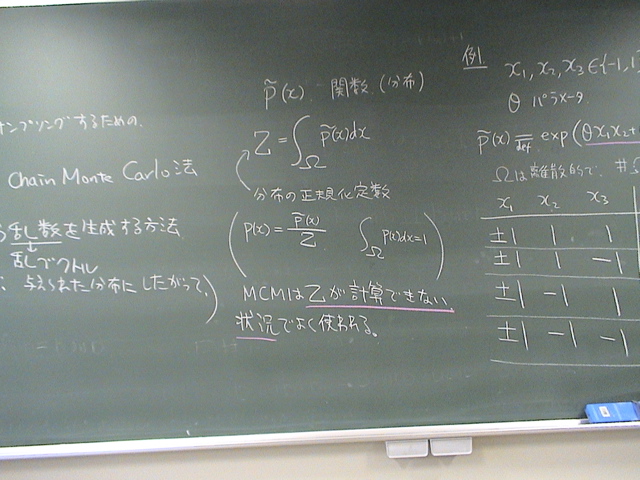 ンプリングするための
Chain Monte Carlo法
乱数を生成する方法
乱しベクトル
与えられた分布にしたがって、)
p̃(x) 関数(分布)
Z = ∫_Ω p̃(x)dx
分布の正規化定数
( p(x) = p̃(x)/Z ∫_Ω p(x)dx = 1 )
MCMはZが計算できない
状況でよく使われる。
例.
x₁, x₂, x₃ ∈ {-1, 1
θ パラメータ
p̃(x) = def. exp(θx₁x₂+
Ωは離散的で、 #Ω
x₁ x₂ x₃
±1 1 1
±1 1 -1
±1 -1 1
±1 -1 -1